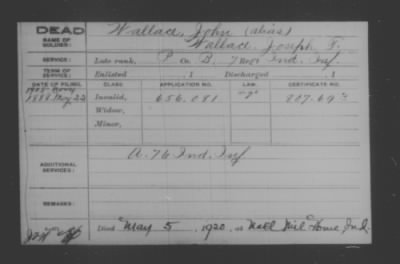 DEAD
NAME OF SOLDIER: Wallace, John (alias)
Wallace, Joseph F.
SERVICE: Late rank, P Co. B, 7 Reg't Ind. Inf.
TERM OF SERVICE: Enlisted , 1 Discharged , 1
DATE OF FILING. CLASS. APPLICATION NO. LAW. CERTIFICATE NO.
1888 May 22 Invalid, 656.081
Widow,
Minor,
ADDITIONAL SERVICES: A. 76 Ind. Inf
REMARKS:
Died May 5, 1920, at Nat'l Mil Home Ind.